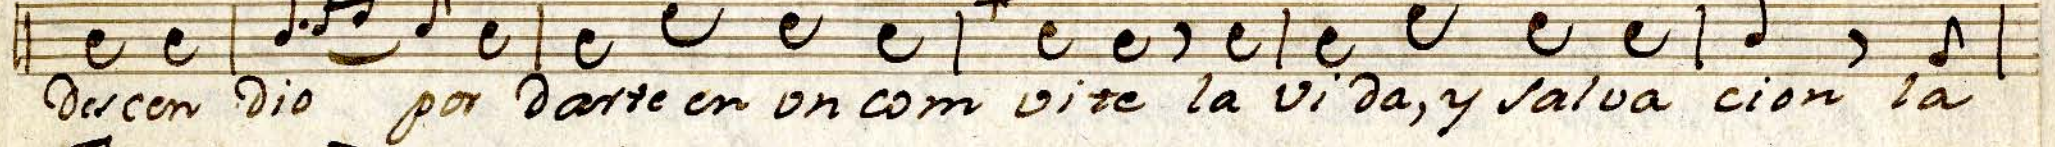 descen dio por darte en un com vite la vi da, y salva cion la